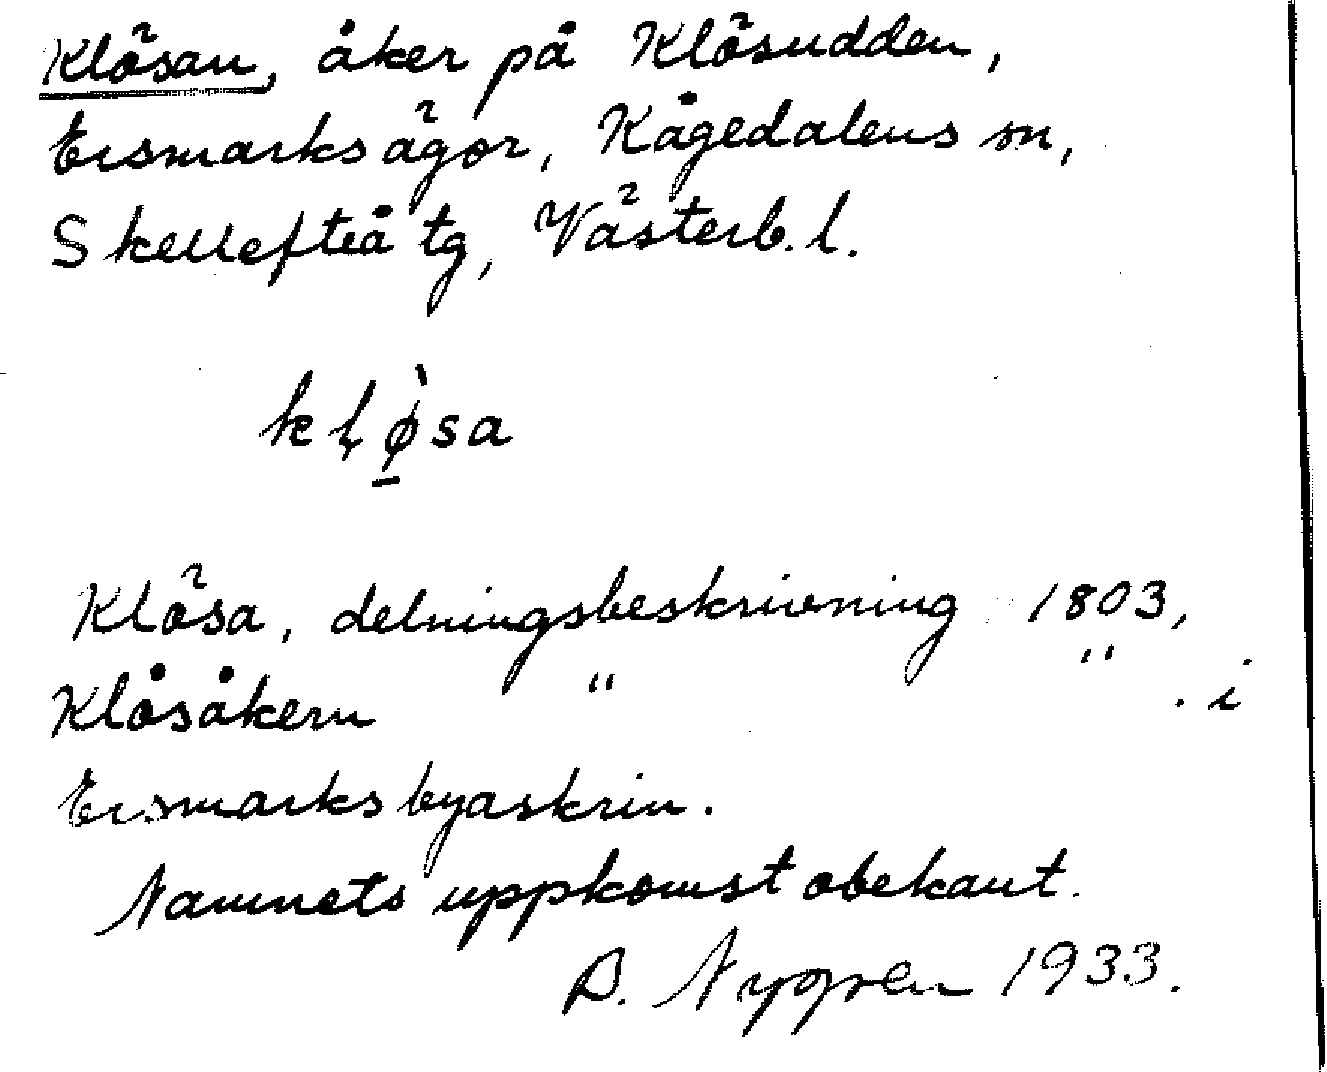 Klösan, åker på Klösudden,
Ersmarks ägor, Kågedalens sn,
Skellefteå tg, Västerb. l.
kḷø̠̀sa
Klösa, delningsbeskrivning 1803,
Klåsåkern " " . i
Ersmarks byaskrin.
Namnets uppkomst obekant.
D. Nygren 1933.